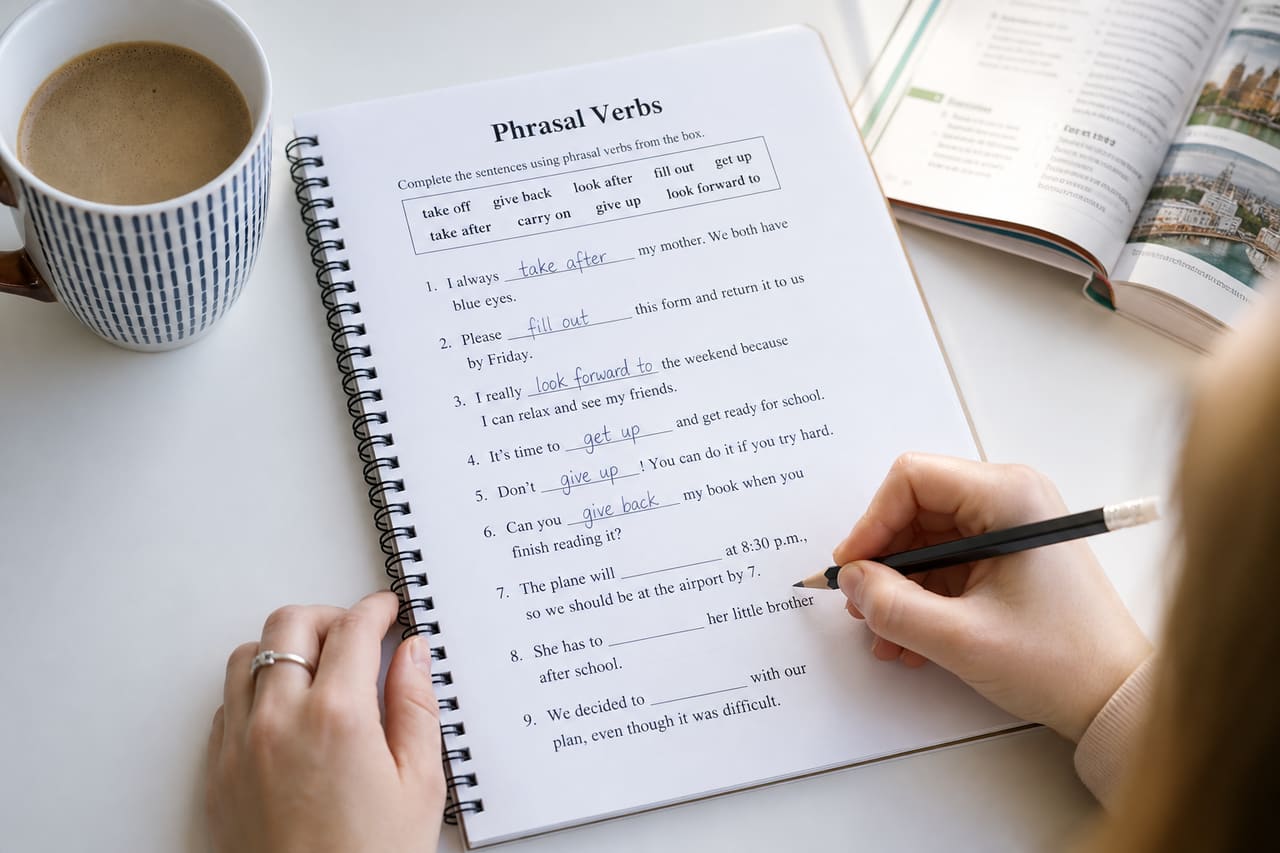 Phrasal Verbs
Complete the sentences using phrasal verbs from the box.
take off give back look after fill out get up
take after carry on give up look forward to
1. I always take after my mother. We both have
blue eyes.
2. Please fill out this form and return it to us
by Friday.
3. I really look forward to the weekend because
I can relax and see my friends.
4. It’s time to get up and get ready for school.
5. Don’t give up! You can do it if you try hard.
6. Can you give back my book when you
finish reading it?
7. The plane will ________ at 8:30 p.m.,
so we should be at the airport by 7.
8. She has to ________ her little brother
after school.
9. We decided to ________ with our
plan, even though it was difficult.